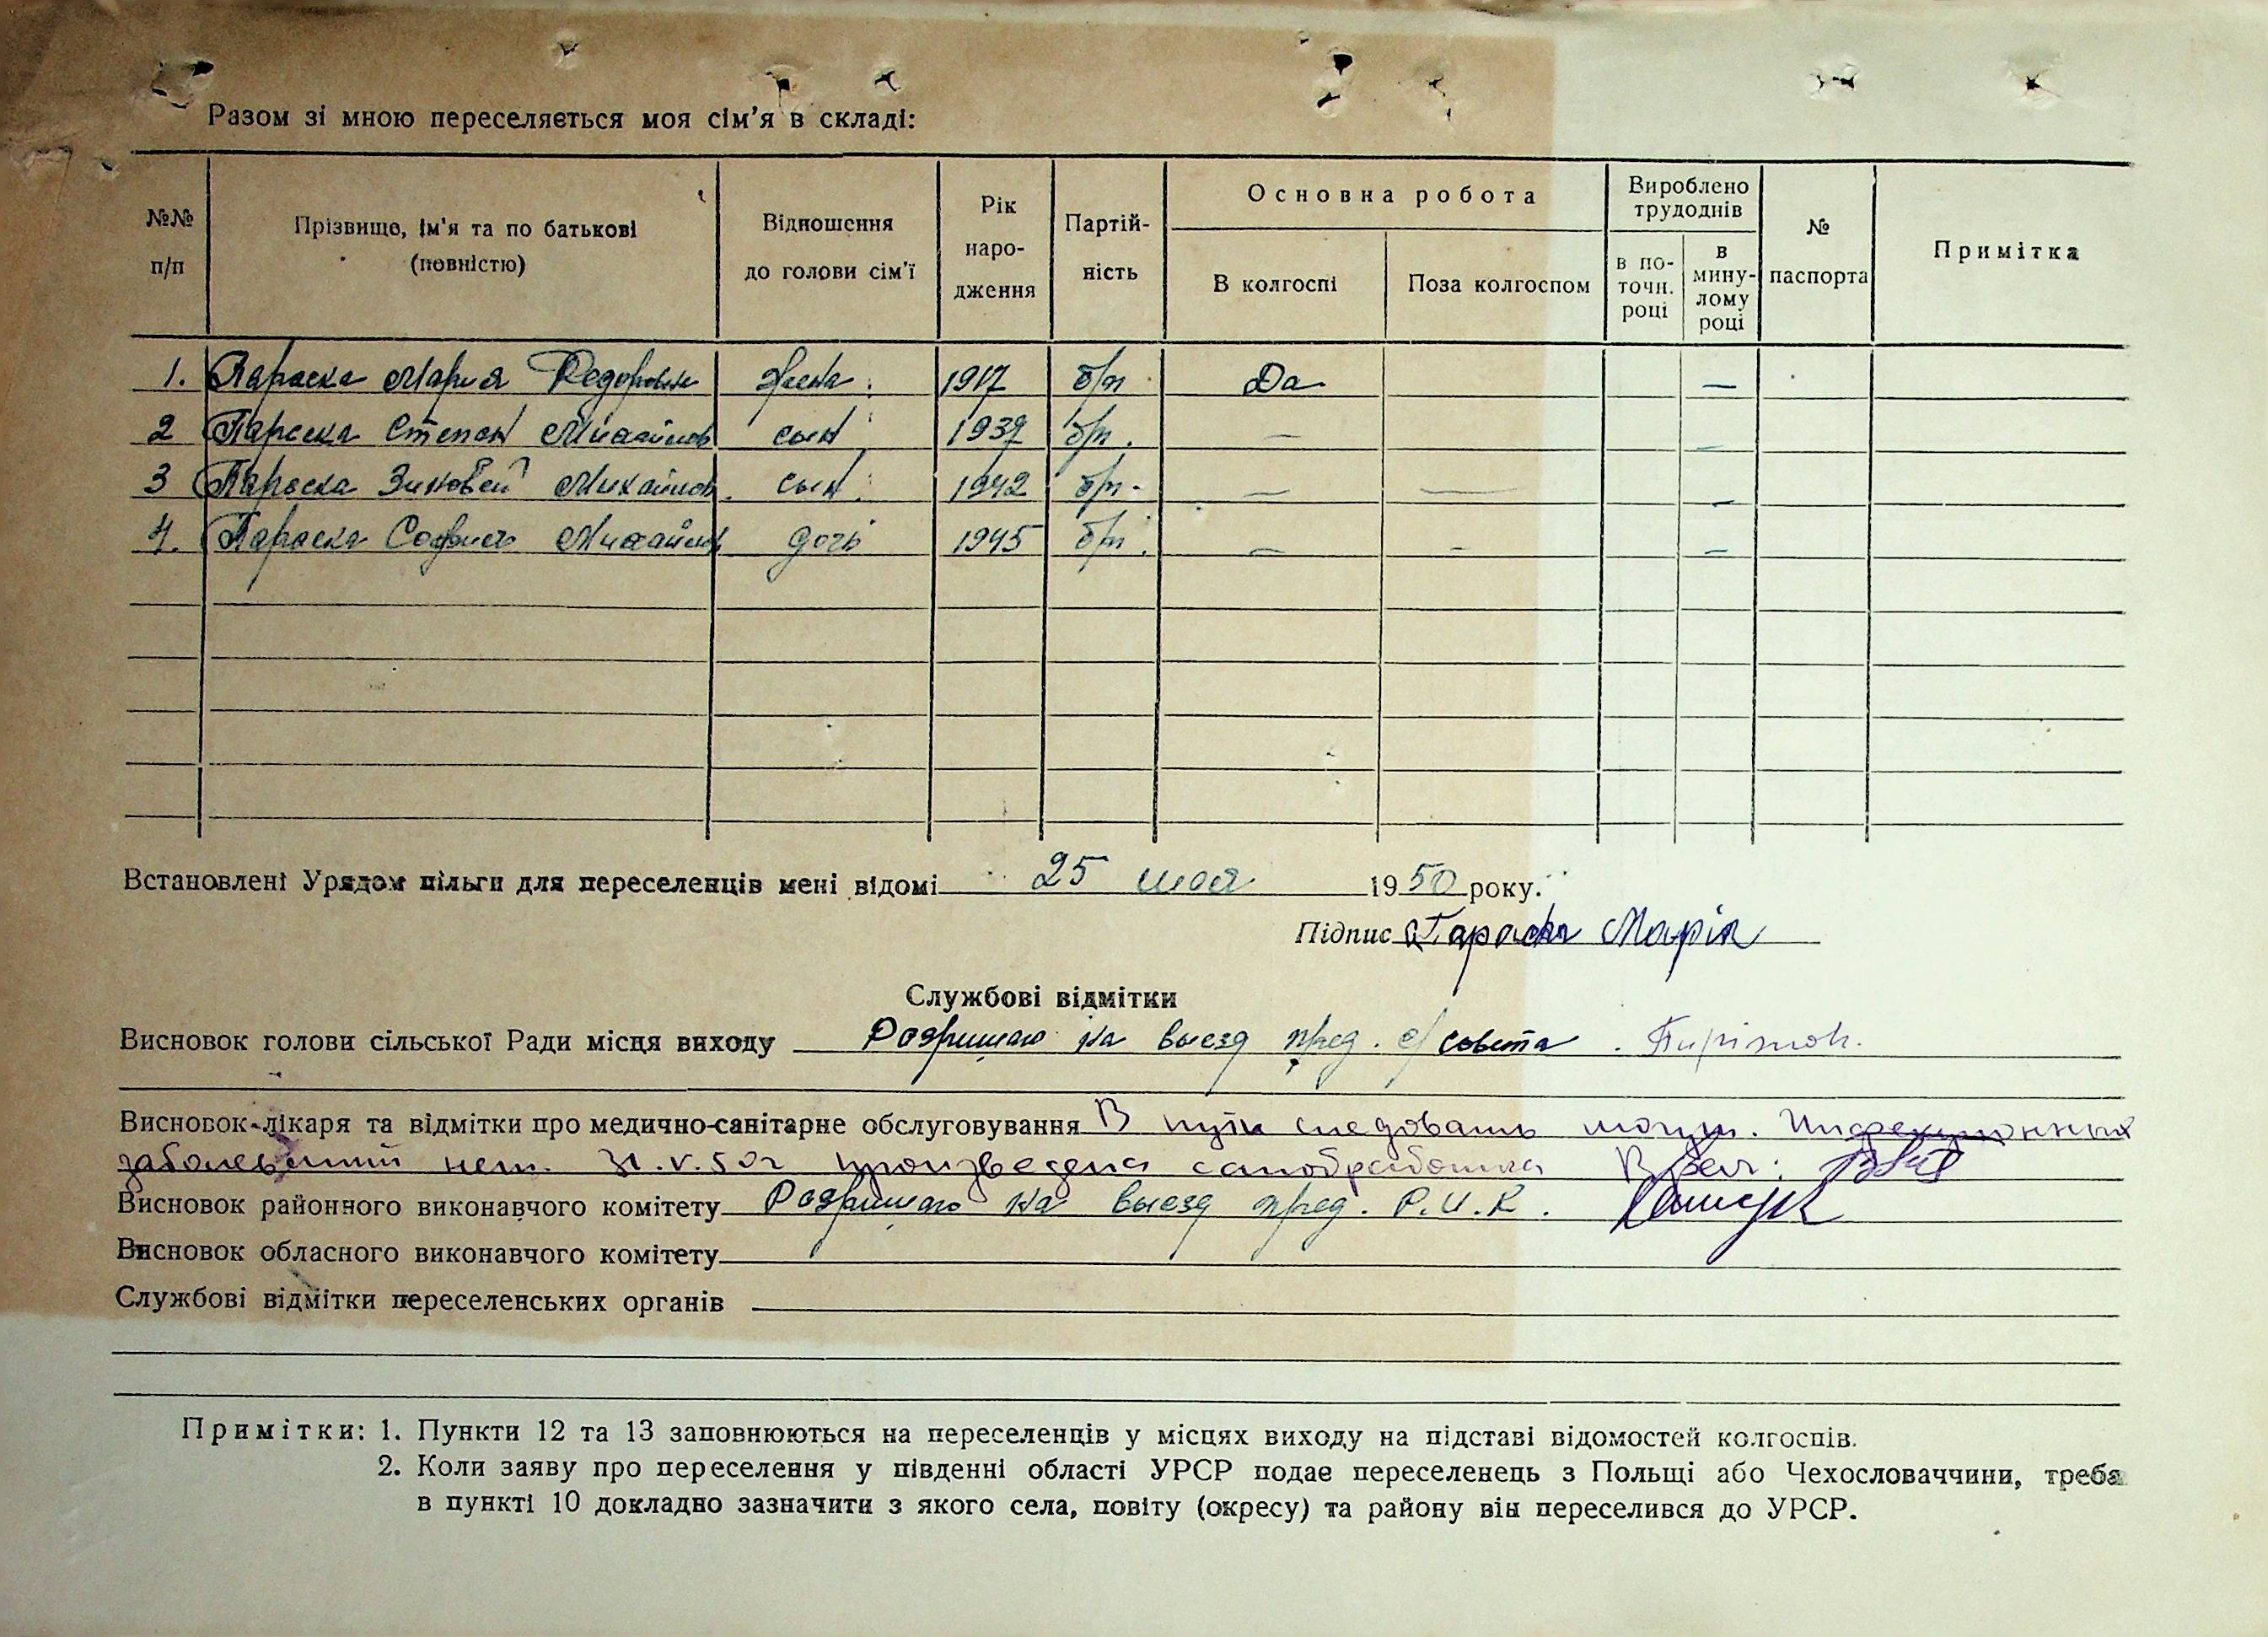 Разом зі мною переселяється моя сім'я в складі:
№№ п/п
Прізвище, ім'я та по батькові (повністю)
Відношення до голови сім'ї
Рік народження
Партійність
Основна робота
В колгоспі
Поза колгоспом
Вироблено трудоднів
в поточн. році
в минулому році
№ паспорта
Примітка
1. Параска Мария Федоровн жена 1917 б/п Да —
2 Параска Степан Михайлов сын 1937 б/п. — —
3 Параска Зиновей Михайлов. сын 1942 б/п. — — —
4. Параска София Михайлов дочь 1945 б/п. — — —
Встановлені Урядом пільги для переселенців мені відомі 25 мая 1950 року.
Підпис Параска Марія
Службові відмітки
Висновок голови сільської Ради місця виходу Розришаю на выезд пред. с/совета.
Висновок лікаря та відмітки про медично-санітарне обслуговування В пути следовать могут. Инфекционных
заболеваний нет. 31.V.50г произведена санобработка Врач:
Висновок районного виконавчого комітету Розришаю на выезд пред. Р.И.К.
Висновок обласного виконавчого комітету
Службові відмітки переселенських органів
Примітки: 1. Пункти 12 та 13 заповнюються на переселенців у місцях виходу на підставі відомостей колгоспів.
2. Коли заяву про переселення у південні області УРСР подає переселенець з Польщі або Чехословаччини, треба
в пункті 10 докладно зазначити з якого села, повіту (окресу) та району він переселився до УРСР.